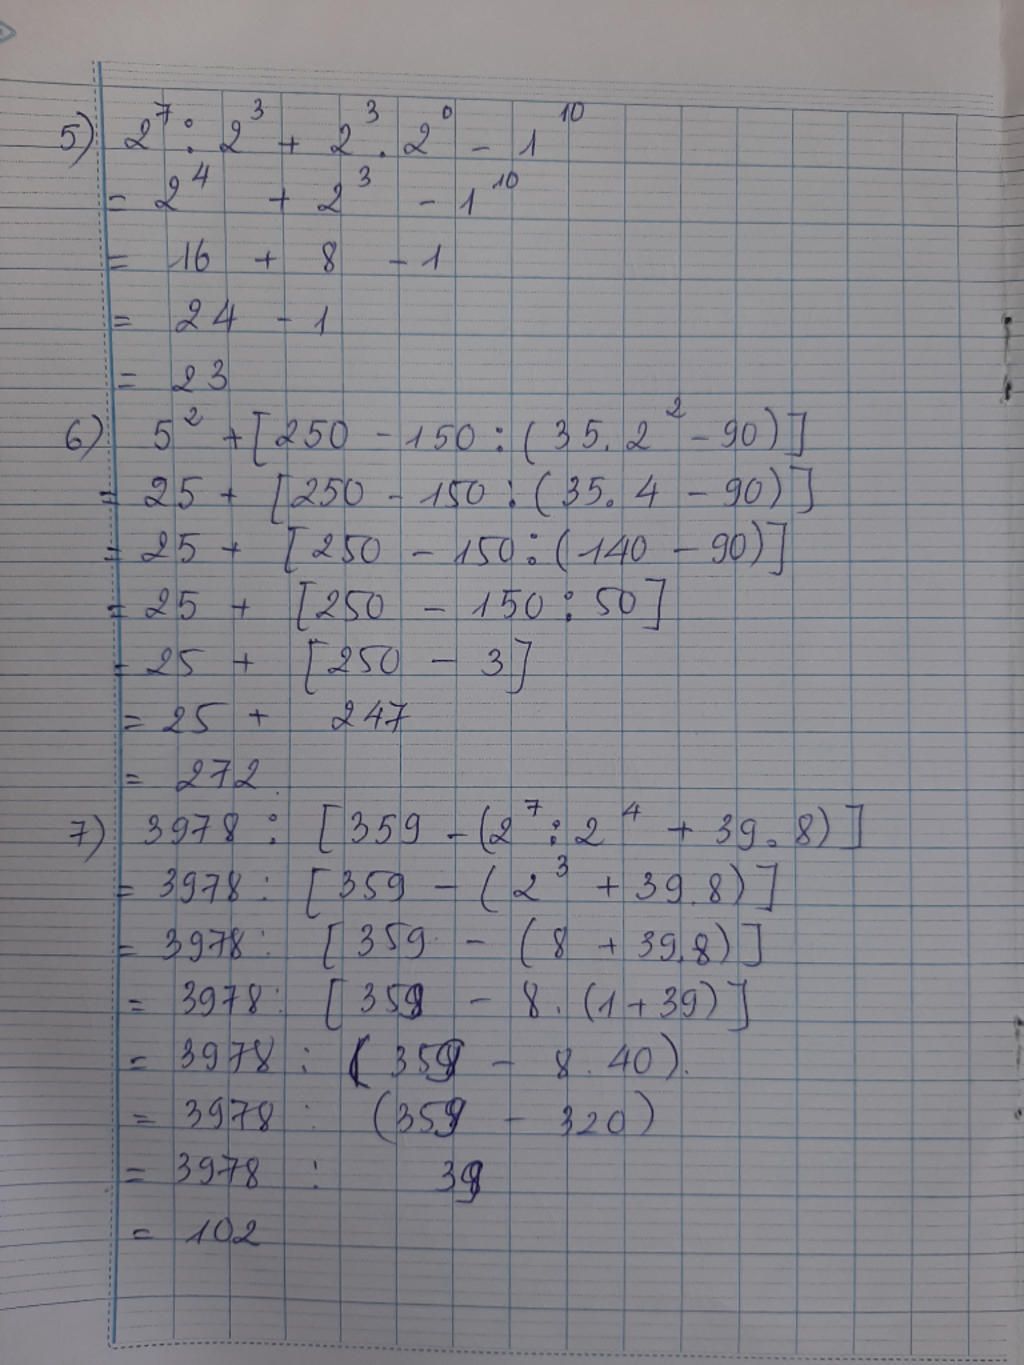 5) 2⁷ : 2³ + 2³ . 2⁰ - 1¹⁰
= 2⁴ + 2³ - 1¹⁰
= 16 + 8 - 1
= 24 - 1
= 23
6) 5² + [250 - 150 : (35. 2² - 90)]
= 25 + [250 - 150 : (35. 4 - 90)]
= 25 + [250 - 150 : (140 - 90)]
= 25 + [250 - 150 : 50]
= 25 + [250 - 3]
= 25 + 247
= 272.
7) 3978 : [359 - (2⁷ : 2⁴ + 39. 8)]
= 3978 : [359 - (2³ + 39.8)]
= 3978 : [359 - (8 + 39.8)]
= 3978 : [359 - 8. (1 + 39)]
= 3978 : (359 - 8. 40).
= 3978 : (359 - 320)
= 3978 : 39
= 102